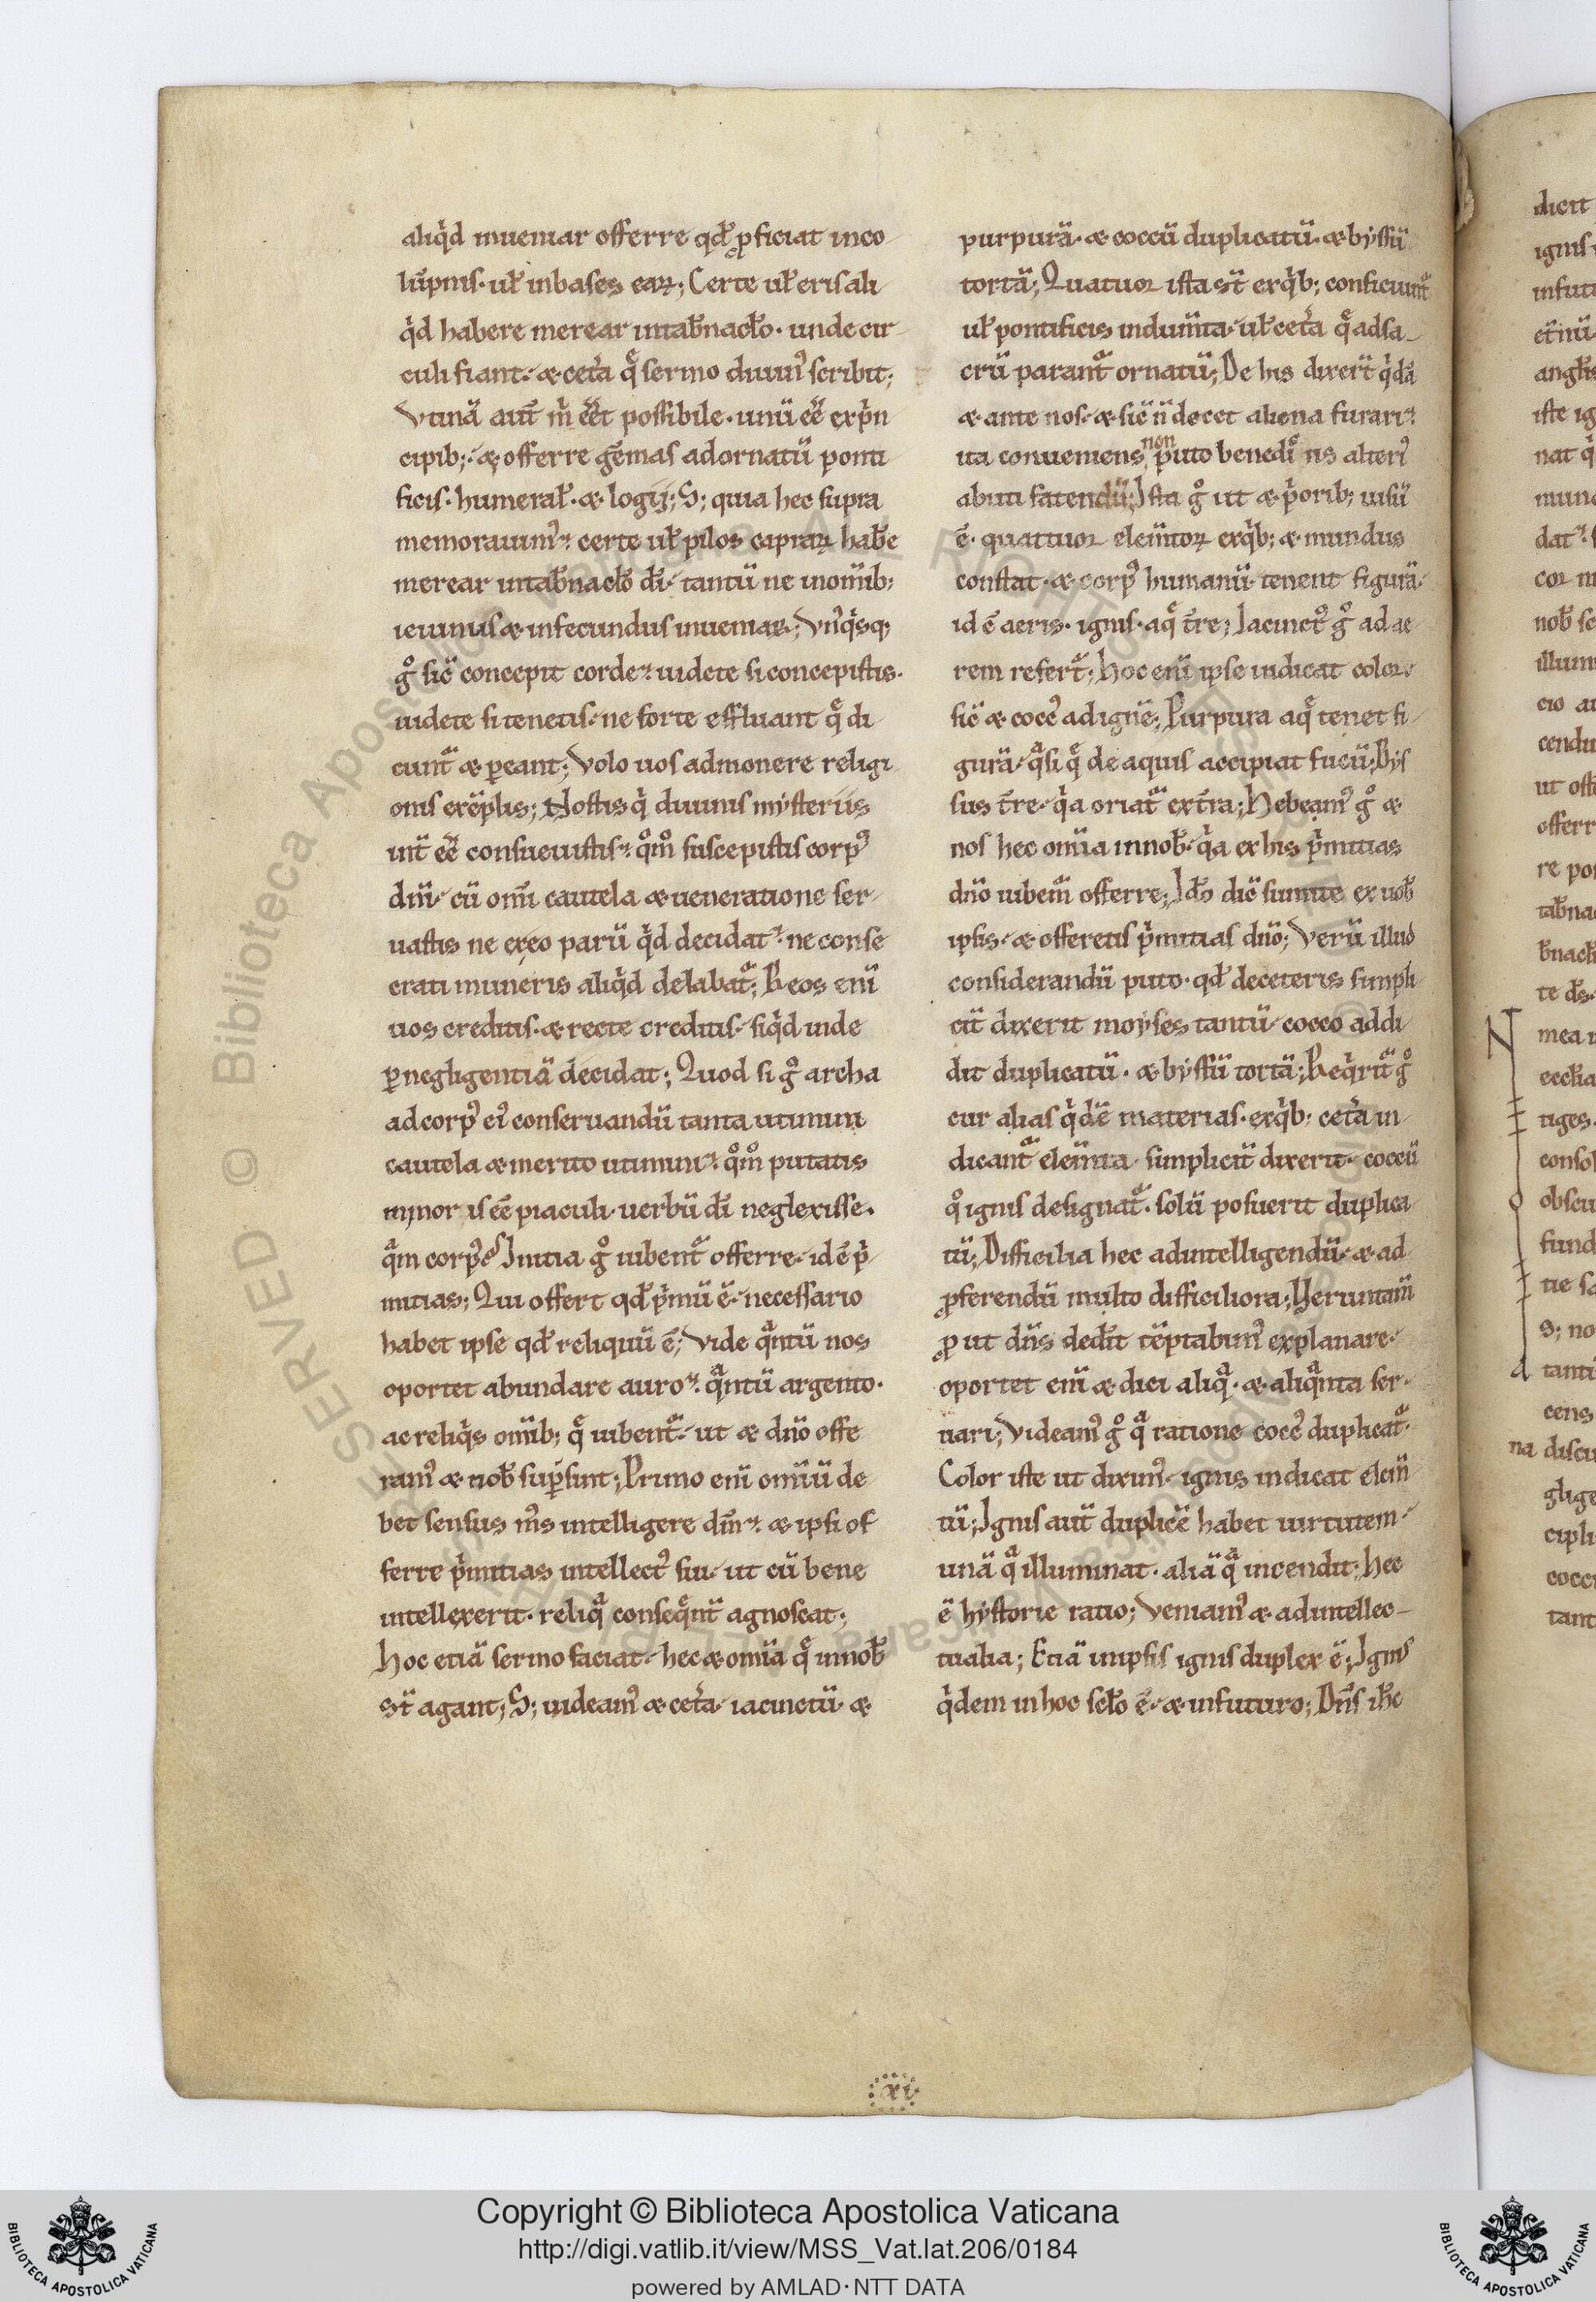 aliq̇d inueniar offerre qd̛ ꝓficiat in co-
lūpnis· ul̛ in bases eaꝝ; Certe ul̛ eris ali
q̇d habere merear in tab̅nacl̅o· unde cir-
culi fiant· æ cet̉a q̨̄ sermo diuin᾽ scribit;
Vtinā aut̄ ṁ eēt possibile· unū eē ex ṗn
cipib;· æ offerre gēmas ad ornatū ponti
ficis· humeral̛· æ logij; S; quia hec supra
memorauim᾽· certe ul̛ pilos capraꝝ hab̅e
merear in tab̅nacl̅o dī· tantū ne in om̄ib;
ieiunus æ infecundus inueniar; Vn᾽q̇sq;
g̊ sic̄ concepit corde· uidete si concepistis·
uidete si tenetis· ne forte effluant q̨̄ di
cunt̄ æ ꝑeant; Volo uos admonere religi
onis exēplis; Nostis q̇ diuinis mysteriis
int̄ eē consueuistis· q̊m̊ suscepistis corp᾽
dn̄i· cū om̄i cautela æ ueneratione ser-
uatis ne ex eo parū q̇d decidat· ne conse
crati muneris aliq̇d delabat̄; Reos enī
uos creditis· æ recte creditis· si q̇d inde
ꝑ negligentiā decidat; Quod si g̊ archa
ad corp᾽ ei᾽ conseruandū tanta utimini
cautela æ merito utimini· q̊m̊ putatis
minor is eē piaculi· uerbū dī neglexisse·
q̄m corp᾽ e᾽; Initia g̊ iubent̄ offerre· id ē ṗ-
mitias; Qui offert qd̛ ṗmū ē· necessario
habet ipse qd̛ reliquū ē; Vide q̄ntū nos
oportet abundare auro· q̄ntū argento·
ac reliq̇s om̄ib; q̨̄ iubent̄· ut æ dn̄o offe
ram᾽ æ nob̛ suꝑsint; Primo enī om̄iū de
bet sensus m̄s intelligere dn̄m· æ ipsi of
ferre ṗmitias intellect᾽ sui· ut cū bene
intellexerit· reliq̄ conseq̄nt̄ agnoscat;
Hoc etiā sermo faciat· hec æ om̄ia q̨̄ in nob̛
st̄ agant; S; uideam᾽ æ cet̉a· iacinctū æ
purpurā· æ coccū duplicatū· æ byssū
tortā; Quatuor ista st̄ ex q̇b; conficiunt̄
ul̛ pontificis indum̄ta· ul̛ cet̉a q̨̄ ad sa-
crū parant̄ ornatū; De his dixert̄ q̇dā
æ ante nos· æ sic̄ n̄ decet aliena furari·
ita conueniens non puto benedi᾽ ns alteri᾽
abuti fatendū; Ista g̊ ut æ ṗorib; uisū
ē· quattuor elem̄toꝝ ex q̇b; æ mundus
constat· æ corp᾽ humanū· tenent figurā·
id ē aeris· ignis· aq̨̄ t̄re; Iacinct᾽ g̊ ad ae
rem refert̄; hoc enī ipse indicat color·
sic̄ æ cocc᾽ ad ignē; Purpura aq̨̄ tenet fi-
gurā· q̄si q̨̄ de aquis accipiat fucū; Bys
sus t̄re· q̇a oriat̄ ex t̄ra; Hebeam᾽ g̊ æ
nos hec om̄ia in nob̛· q̇a ex his ṗmitias
dn̄o iubem̄ offerre; Id̛o dic̄ sumite ex uob̛
ipsis· æ offeretis ṗmitias dn̄o; Verū illud
considerandū puto· qd̛ de ceteris simpli
cit̄ dixerit moyses tantū· cocco addi-
dit duplicatū· æ byssū tortā; Req̇rit̄ g̊
cur alias q̇dē materias· ex q̇b; cet̉a in-
dicant̄ elem̄ta· simplicit̄ dixerit· coccū
q̊ ignis designat̄· solū posuerit duplica
tū; Difficilia hec ad intelligendū· æ ad
ꝓferendū multo difficiliora; Veruntam̄
ꝓ ut dn̄s ded̛it tēptabim᾽ explanare·
oportet enī æ dici aliq̄· æ aliq̄nta ser-
uari; Videam᾽ g̊ q̄ ratione cocc᾽ duplicat̄·
Color iste ut dixim᾽· ignis indicat elem̄
tū; Ignis aut̄ duplicē habet uirtutem·
unā q̄ illuminat· aliā q̄ incendit; hec
ē hystorie ratio; Veniam᾽ æ ad intellec-
tualia; Etiā in ipsis ignis duplex ē; Ignis
q̇dem in hoc scl̛o ē· æ in futuro; Dn̄s ih̄c
·xi·
Copyright © Biblioteca Apostolica Vaticana
http://digi.vatlib.it/view/MSS_Vat.lat.206/0184
powered by AMLAD·NTT DATA
BIBLIOTECA APOSTOLICA VATICANA
BIBLIOTECA APOSTOLICA VATICANA